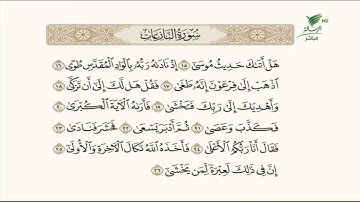 سورة النازعات
هَلْ أَتَىٰكَ حَدِيثُ مُوسَىٰٓ ١٥ إِذْ نَادَىٰهُ رَبُّهُۥ بِٱلْوَادِ ٱلْمُقَدَّسِ طُوًى ١٦
ٱذْهَبْ إِلَىٰ فِرْعَوْنَ إِنَّهُۥ طَغَىٰ ١٧ فَقُلْ هَل لَّكَ إِلَىٰٓ أَن تَزَكَّىٰ ١٨
وَأَهْدِيَكَ إِلَىٰ رَبِّكَ فَتَخْشَىٰ ١٩ فَأَرَىٰهُ ٱلْـَٔايَةَ ٱلْكُبْرَىٰ ٢٠
فَكَذَّبَ وَعَصَىٰ ٢١ ثُمَّ أَدْبَرَ يَسْعَىٰ ٢٢ فَحَشَرَ فَنَادَىٰ ٢٣
فَقَالَ أَنَا۠ رَبُّكُمُ ٱلْأَعْلَىٰ ٢٤ فَأَخَذَهُ ٱللَّهُ نَكَالَ ٱلْـَٔاخِرَةِ وَٱلْأُولَىٰٓ ٢٥
إِنَّ فِى ذَٰلِكَ لَعِبْرَةً لِّمَن يَخْشَىٰٓ ٢٦
HD
الرسالة
مباشر